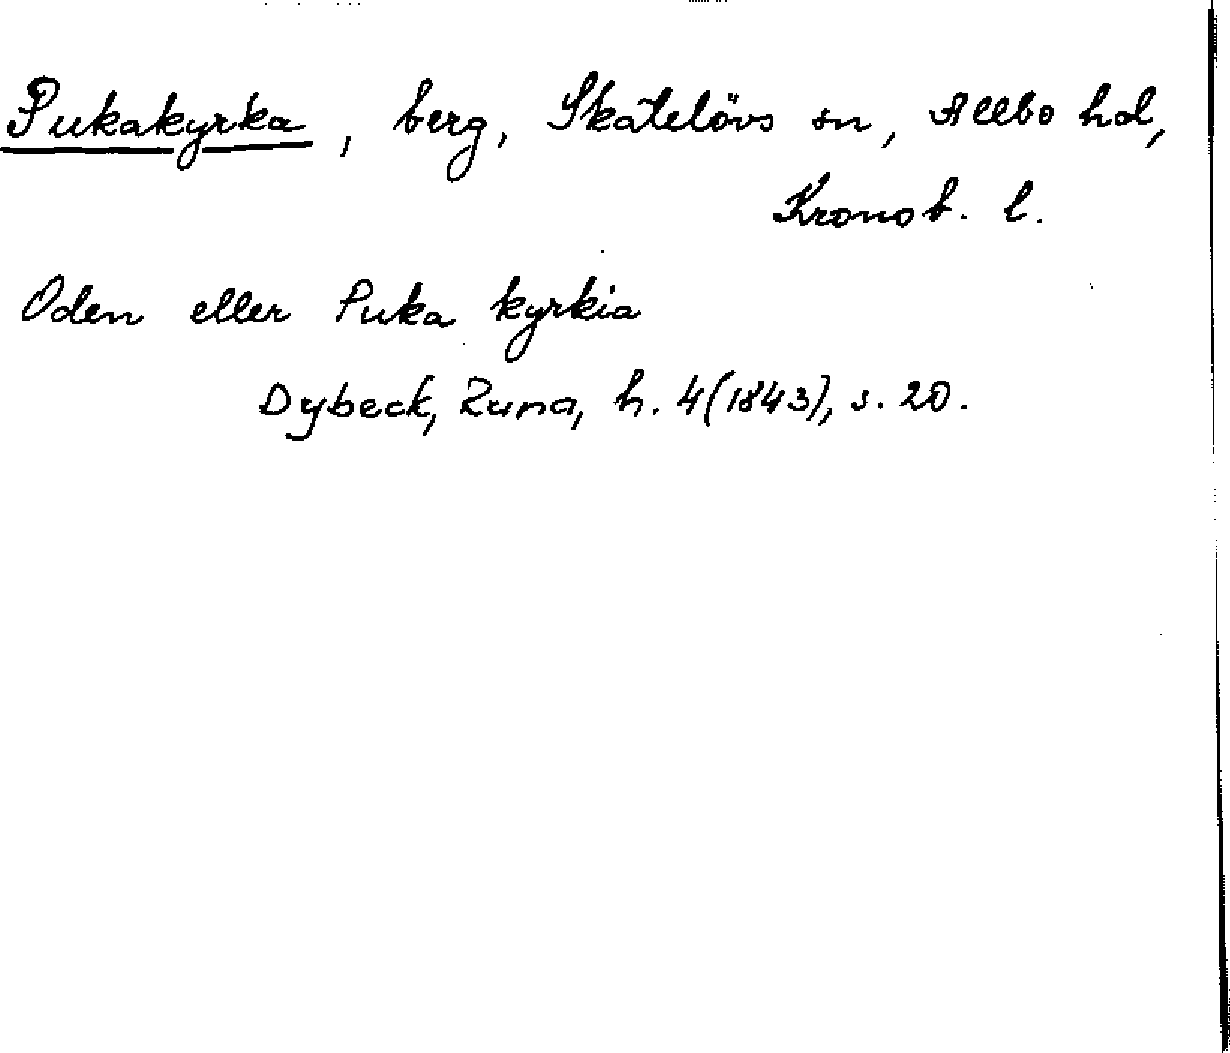 Pukakyrka, berg, Skatelövs sn, Allbo hd,
Kronob. l.
Oden eller Puka kyrkia
Dybeck, Runa, h. 4 (1843), s. 20.